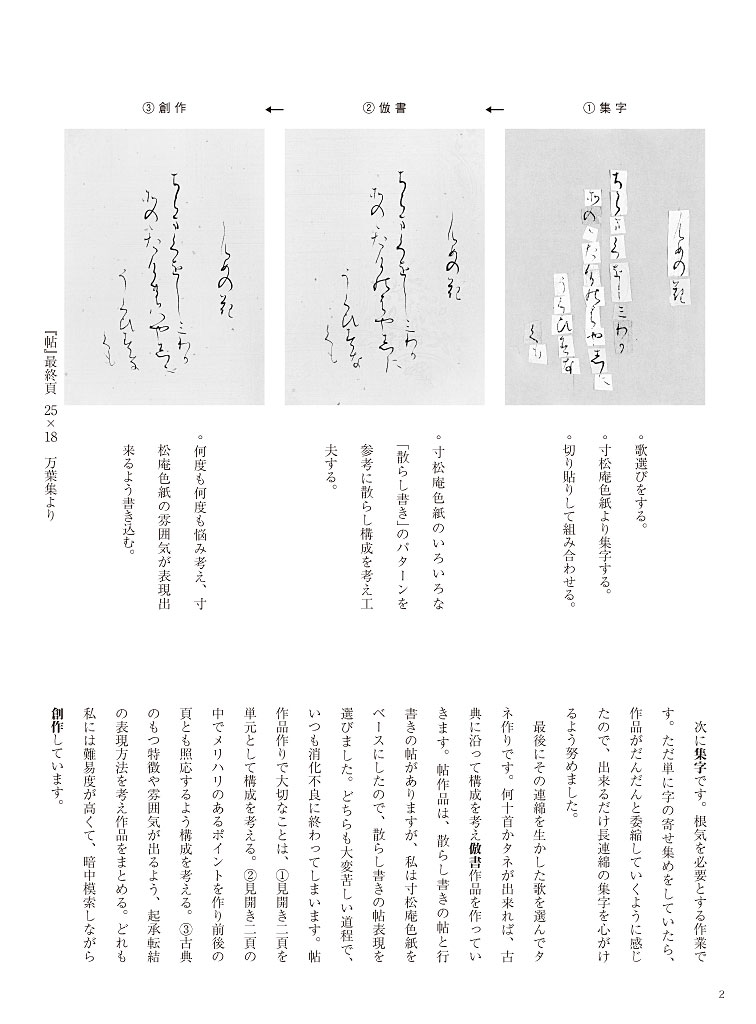 ①集字
②倣書
③創作
。歌選びをする。
。寸松庵色紙より集字する。
。切り貼りして組み合わせる。
。寸松庵色紙のいろいろな
「散らし書き」のパターンを
参考に散らし構成を考え工
夫する。
。何度も何度も悩み考え、寸
松庵色紙の雰囲気が表現出
来るよう書き込む。
『帖』最終頁 25×18 万葉集より
次に集字です。根気を必要とする作業で
す。ただ単に字の寄せ集めをしていたら、
作品がだんだんと委縮していくように感じ
たので、出来るだけ長連綿の集字を心がけ
るよう努めました。
最後にその連綿を生かした歌を選んでタ
ネ作りです。何十首かタネが出来れば、古
典に沿って構成を考え倣書作品を作ってい
きます。帖作品は、散らし書きの帖と行
書きの帖がありますが、私は寸松庵色紙を
ベースにしたので、散らし書きの帖表現を
選びました。どちらも大変苦しい道程で、
いつも消化不良に終わってしまいます。帖
作品作りで大切なことは、①見開き二頁を
単元として構成を考える。②見開き二頁の
中でメリハリのあるポイントを作り前後の
頁とも照応するよう構成を考える。③古典
のもつ特徴や雰囲気が出るよう、起承転結
の表現方法を考え作品をまとめる。どれも
私には難易度が高くて、暗中模索しながら
創作しています。
2